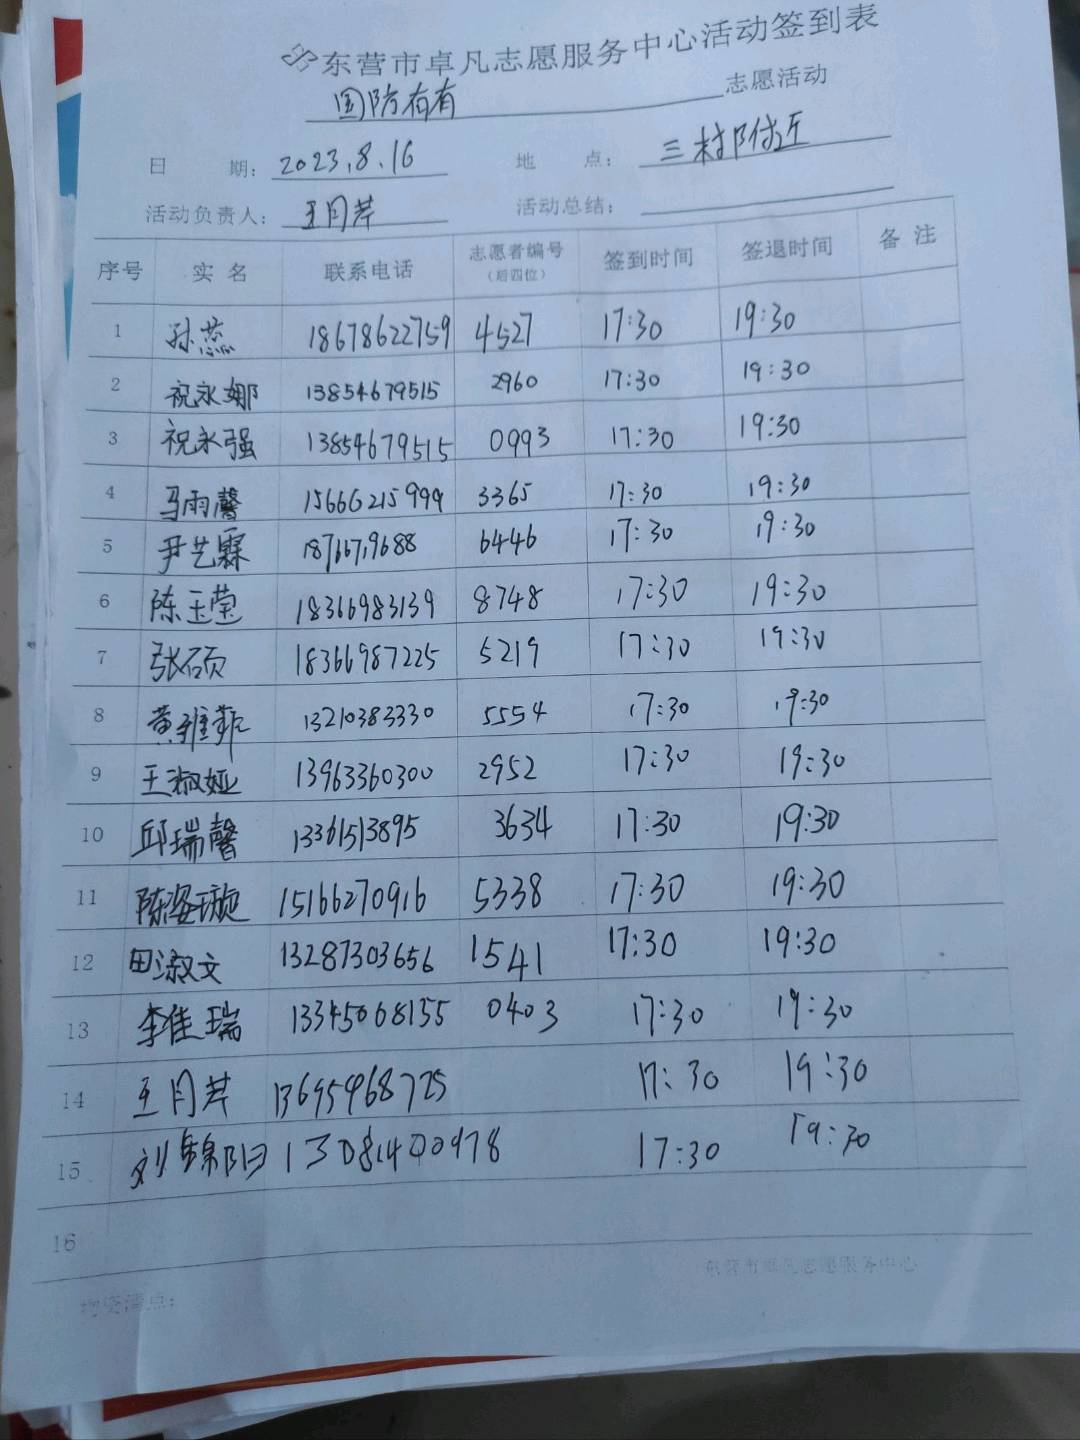 东营市卓凡志愿服务中心活动签到表
国防有有 志愿活动
日 期: 2023.8.16 地 点: 三村附近
活动负责人: 王月芹 活动总结:
序号 实 名 联系电话 志愿者编号 (后四位) 签到时间 签退时间 备 注
1 孙蕊 18678622759 4527 17:30 19:30
2 祝永娜 13854679515 2960 17:30 19:30
3 祝永强 13854679515 0993 17:30 19:30
4 马雨馨 15666215999 3365 17:30 19:30
5 尹艺霖 18766719688 6446 17:30 19:30
6 陈玉莹 18366983139 8748 17:30 19:30
7 张硕 18366987225 5219 17:30 19:30
8 黄雅 13210383330 5554 17:30 19:30
9 王淑娅 13963360300 2952 17:30 19:30
10 邱瑞馨 13361513895 3634 17:30 19:30
11 陈姿璇 15166270916 5338 17:30 19:30
12 田淑文 13287303656 1541 17:30 19:30
13 李佳瑞 13345068155 0403 17:30 19:30
14 王月芹 13695468725 17:30 19:30
15 刘锦阳 13081400978 17:30 19:30
16
东营市卓凡志愿服务中心
物资清点: